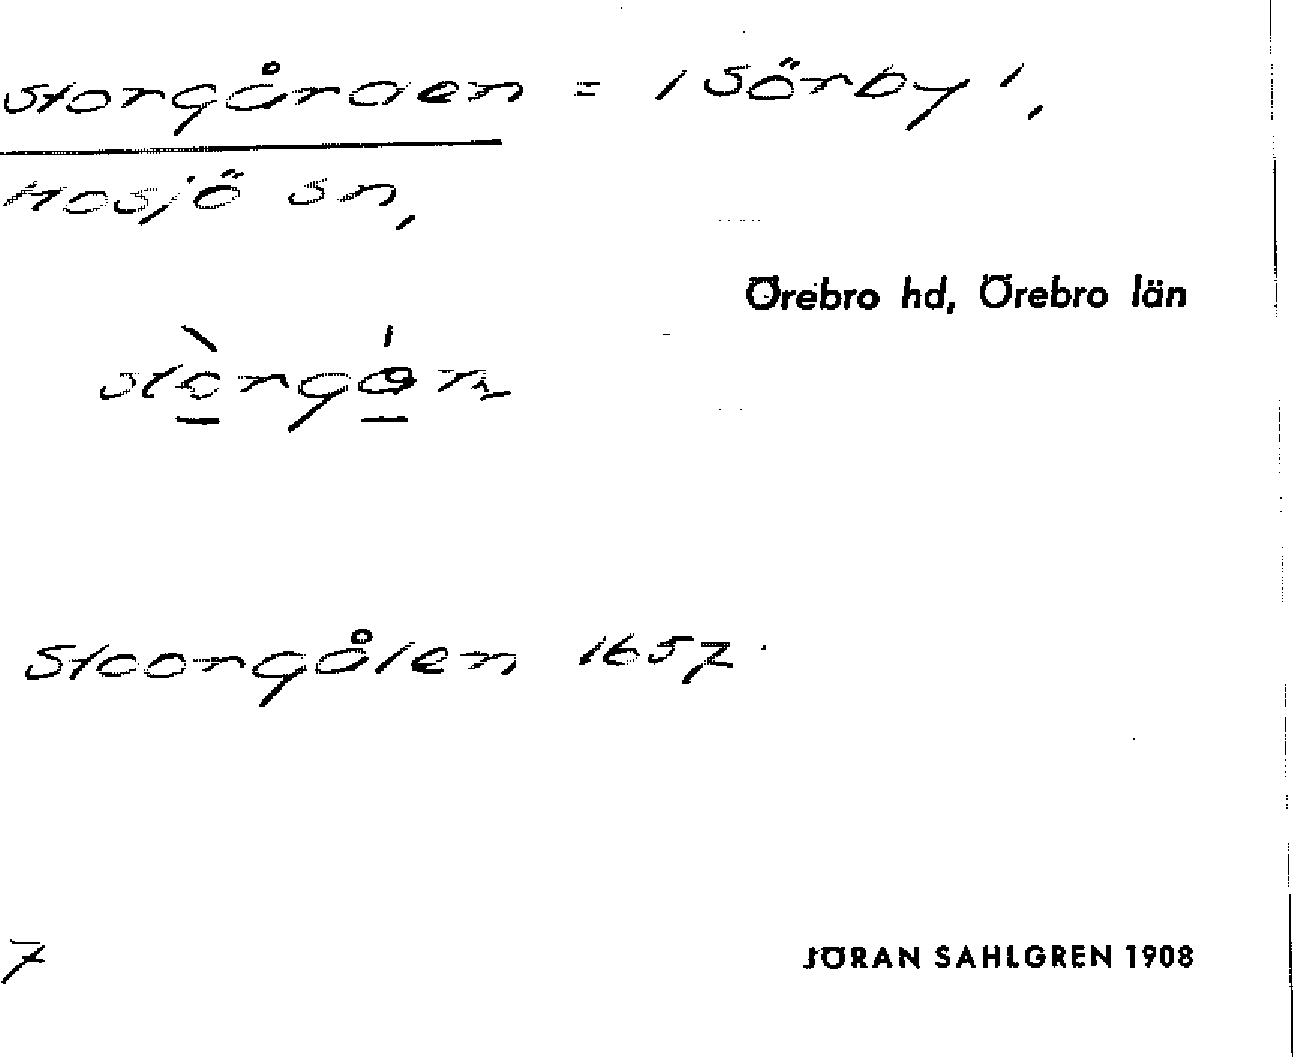 Storgården = i Sörby,
Mosjö sn,
Örebro hd, Örebro län
Stoorgålen 1657.
7
JÖRAN SAHLGREN 1908